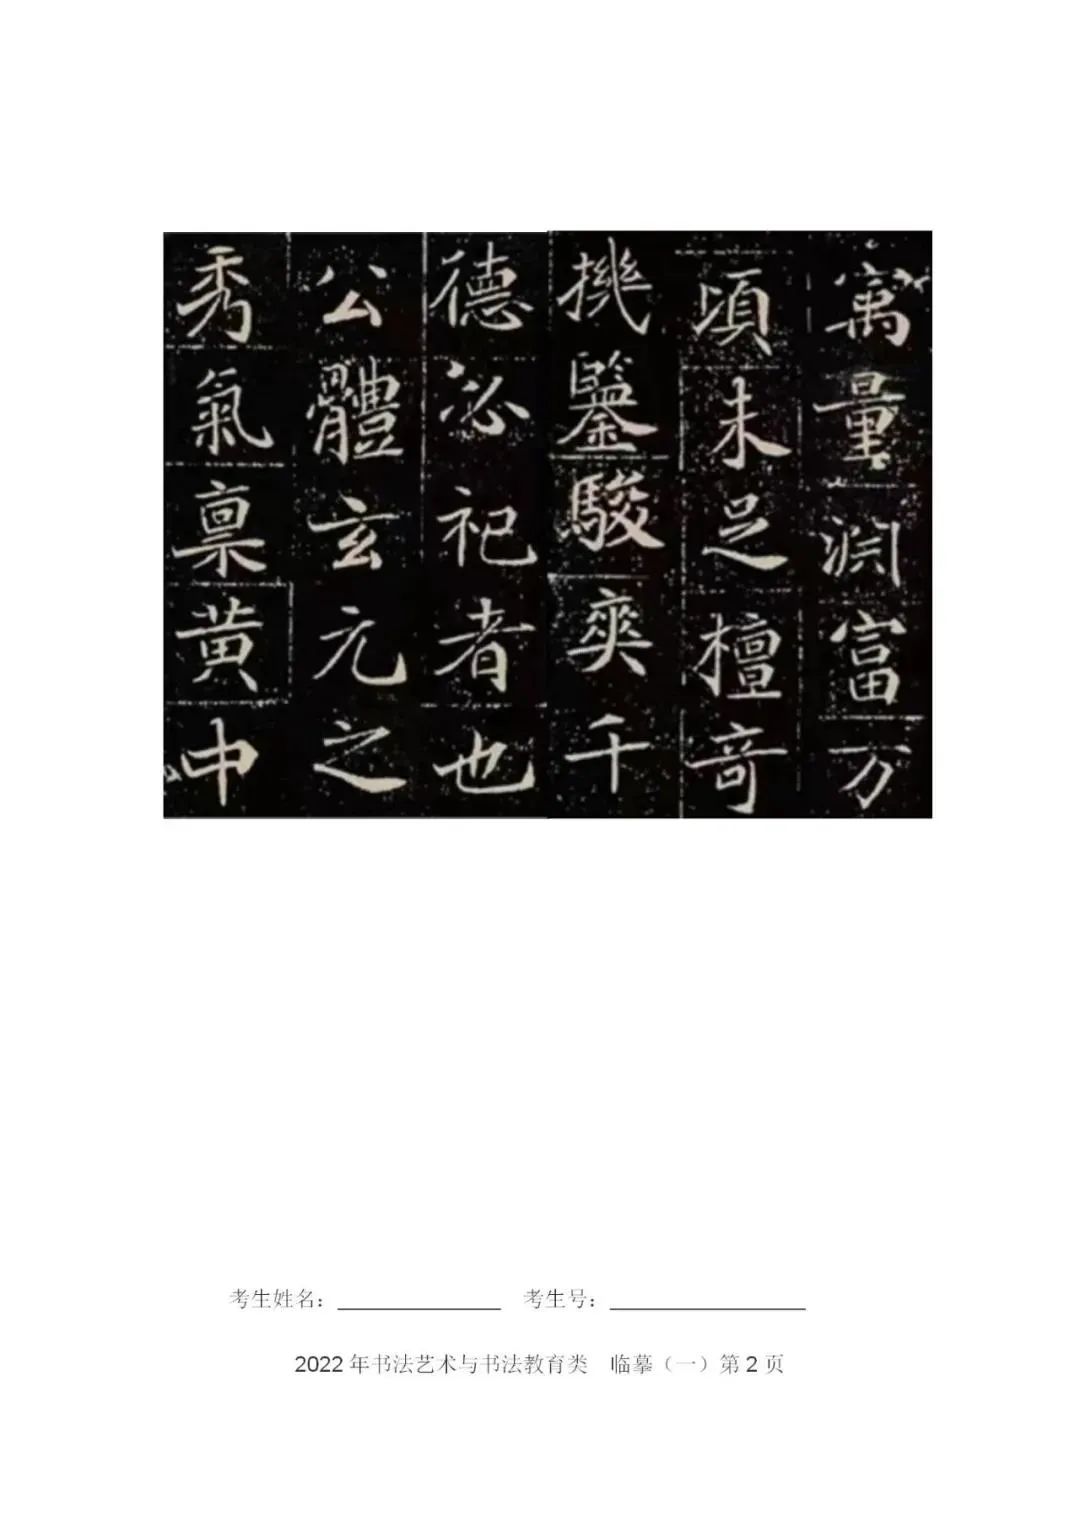 寓量渕富万
頃未足檀竒
撓鑒駿爽千
德必祀者也
公體玄元之
秀氣禀黄中
考生姓名： 考生号：
2022年书法艺术与书法教育类 临摹（一）第2页